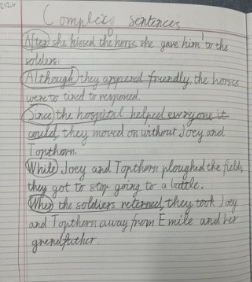 Complex sentences
After she kissed the horse, she gave him to the
soldier.
Although they appeared friendly, the horses
were to tired to respond.
Since the hospital helped everyone it
could, they moved on without Joey and
Topthorn.
While Joey and Topthorn ploughed the fields,
they got to stop going to a battle.
When the soldiers returned, they took Joey
and Topthorn away from Emilie and her
grandfather.